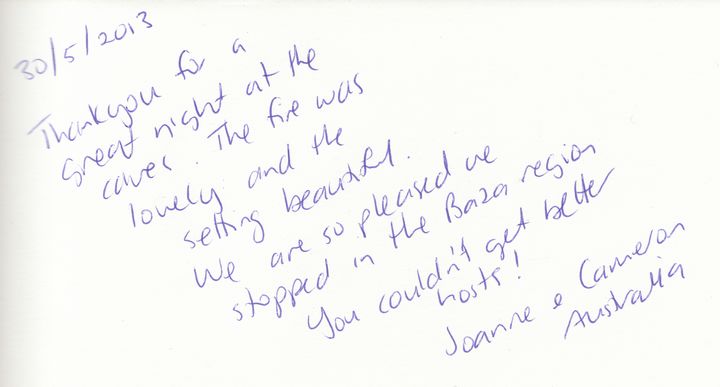 30/5/2013
Thankyou for a
great night at the
caves. The fire was
lovely and the
setting beautiful.
We are so pleased we
stopped in the Baza region
You couldn't get better
hosts!
Joanne & Cameron
Australia